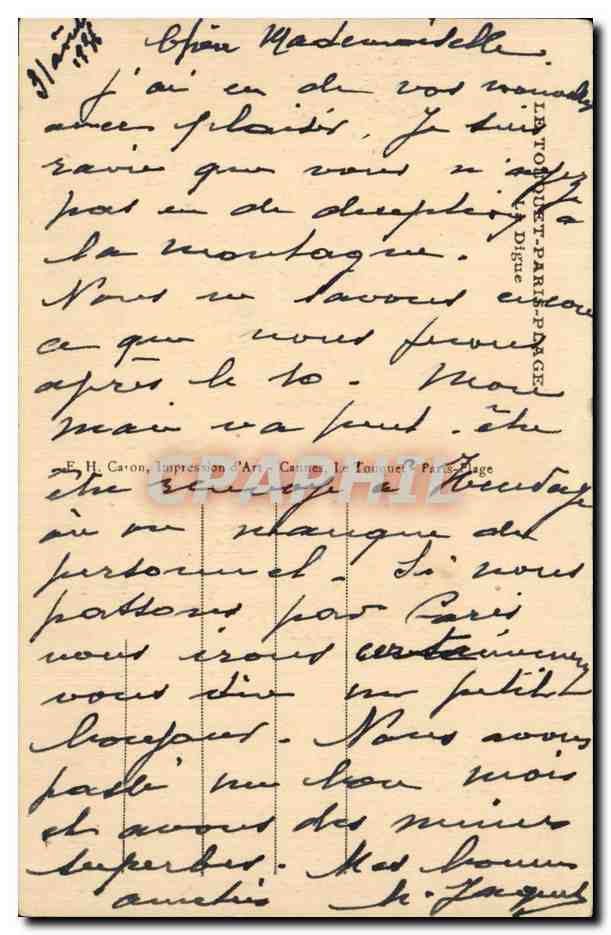 31 août
Chère Mademoiselle.
j'ai eu de vos nouvelles
avec plaisir. Je suis
ravie que vous n'ayez
pas eu de deception à
la montagne.
Nous ne savons encore
ce que nous ferons
après le 10. Mon
mari va peut-être
être envoyé à Hendaye
où on manque de
personnel. Si nous
passons par Paris
nous irons certainement
vous dire un petit
bonjour. Nous avons
passé un bon mois
et avons des mines
superbes. Mes bonnes
amitiés
LE TOUQUET-PARIS-PLAGE
LA Digue
E. H. Caron, Impression d'Art - Cannes, Le Touquet - Paris-Plage
CPAPHIL